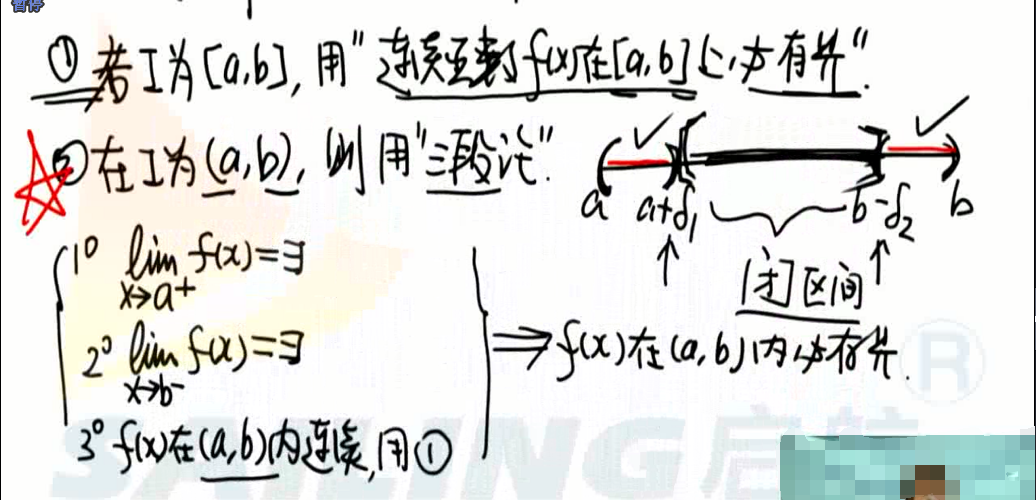 暂停
① 若 I 为 [a,b], 用"连续函数 f(x) 在 [a,b] 上必有界".
② 在 I 为 (a,b), 则用"三段论".
a a+δ₁ b-δ₂ b
[闭]区间
1° lim f(x)=∃
x→a+
2° lim f(x)=∃
x→b-
⇒ f(x) 在 (a,b) 内必有界.
3° f(x) 在 (a,b) 内连续, 用①
SAILING启航®